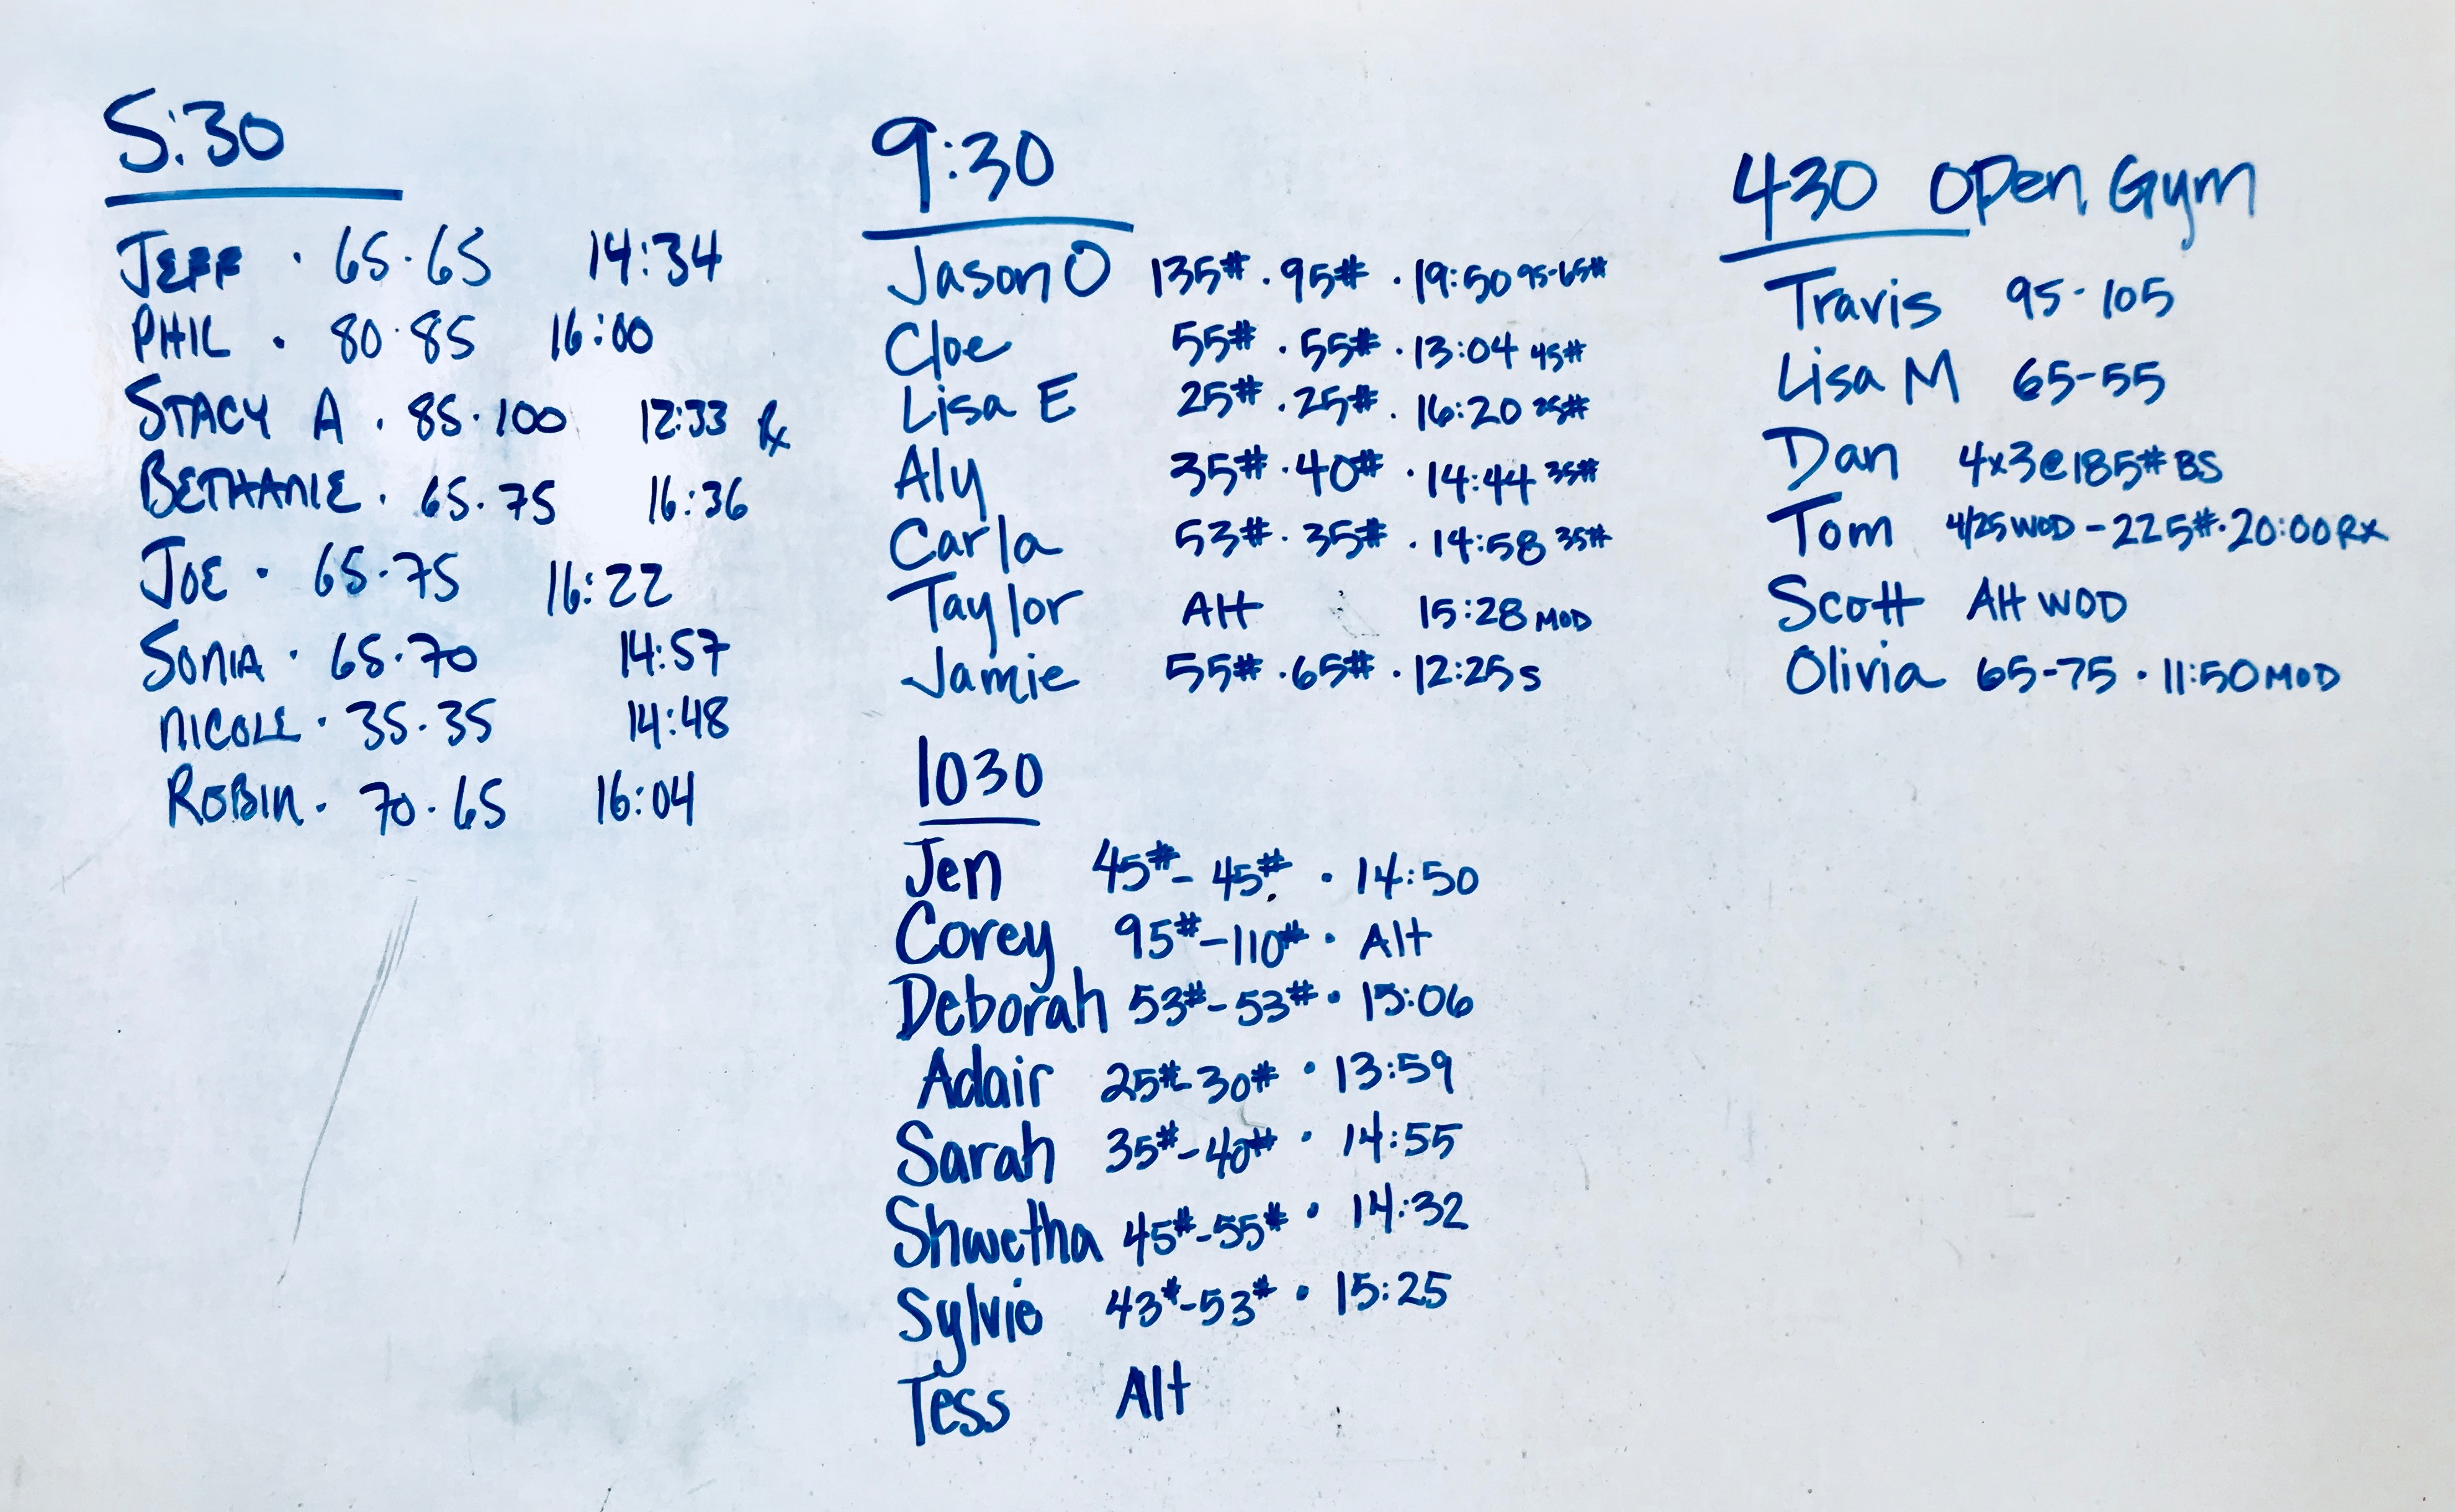 5:30
JEFF · 65·65 14:34
PHIL · 80·85 16:00
STACY A · 85·100 12:33 Rx
BETHANIE · 65·75 16:36
JOE · 65·75 16:22
SONIA · 65·70 14:57
NICOLE · 35·35 14:48
ROBIN · 70·65 16:04
9:30
Jason O 135# · 95# · 19:50 95-65#
Cloe 55# · 55# · 13:04 45#
Lisa E 25# · 25# · 16:20 25#
Aly 35# · 40# · 14:44 35#
Carla 53# · 35# · 14:58 35#
Taylor Alt 15:28 MOD
Jamie 55# · 65# · 12:25s
1030
Jen 45# - 45# · 14:50
Corey 95# - 110# · Alt
Deborah 53# - 53# · 15:06
Adair 25# - 30# · 13:59
Sarah 35# - 40# · 14:55
Shwetha 45# - 55# · 14:32
Sylvie 43# - 53# · 15:25
Tess Alt
430 Open Gym
Travis 95-105
Lisa M 65-55
Dan 4x3@185# BS
Tom 4/25 WOD - 225# · 20:00 Rx
Scott Alt WOD
Olivia 65-75 · 11:50 MOD